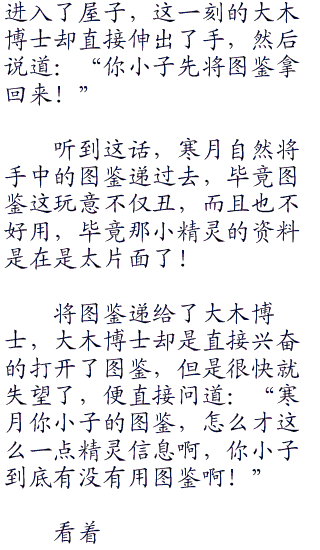 进入了屋子，这一刻的大木
博士却直接伸出了手，然后
说道：“你小子先将图鉴拿
回来！”
听到这话，寒月自然将
手中的图鉴递过去，毕竟图
鉴这玩意不仅丑，而且也不
好用，毕竟那小精灵的资料
是在是太片面了！
将图鉴递给了大木博
士，大木博士却是直接兴奋
的打开了图鉴，但是很快就
失望了，便直接问道：“寒
月你小子的图鉴，怎么才这
么一点精灵信息啊，你小子
到底有没有用图鉴啊！”
看着